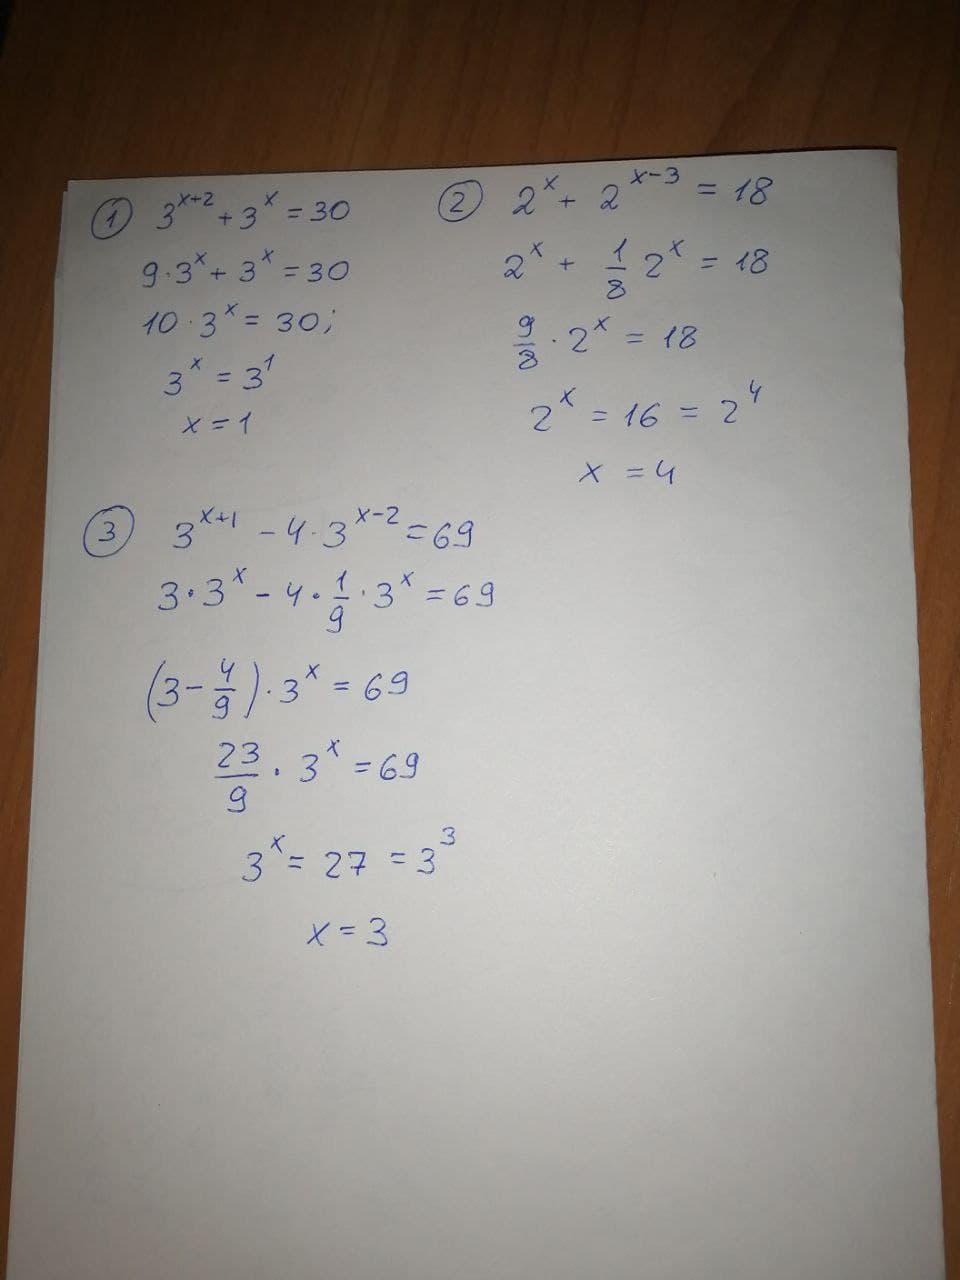 ① 3^{x+2} + 3^x = 30
9 · 3^x + 3^x = 30
10 · 3^x = 30;
3^x = 3^1
x = 1
② 2^x + 2^{x-3} = 18
2^x + \frac{1}{8} 2^x = 18
\frac{9}{8} · 2^x = 18
2^x = 16 = 2^4
x = 4
③ 3^{x+1} - 4 · 3^{x-2} = 69
3 · 3^x - 4 · \frac{1}{9} · 3^x = 69
(3 - \frac{4}{9}) · 3^x = 69
\frac{23}{9} · 3^x = 69
3^x = 27 = 3^3
x = 3